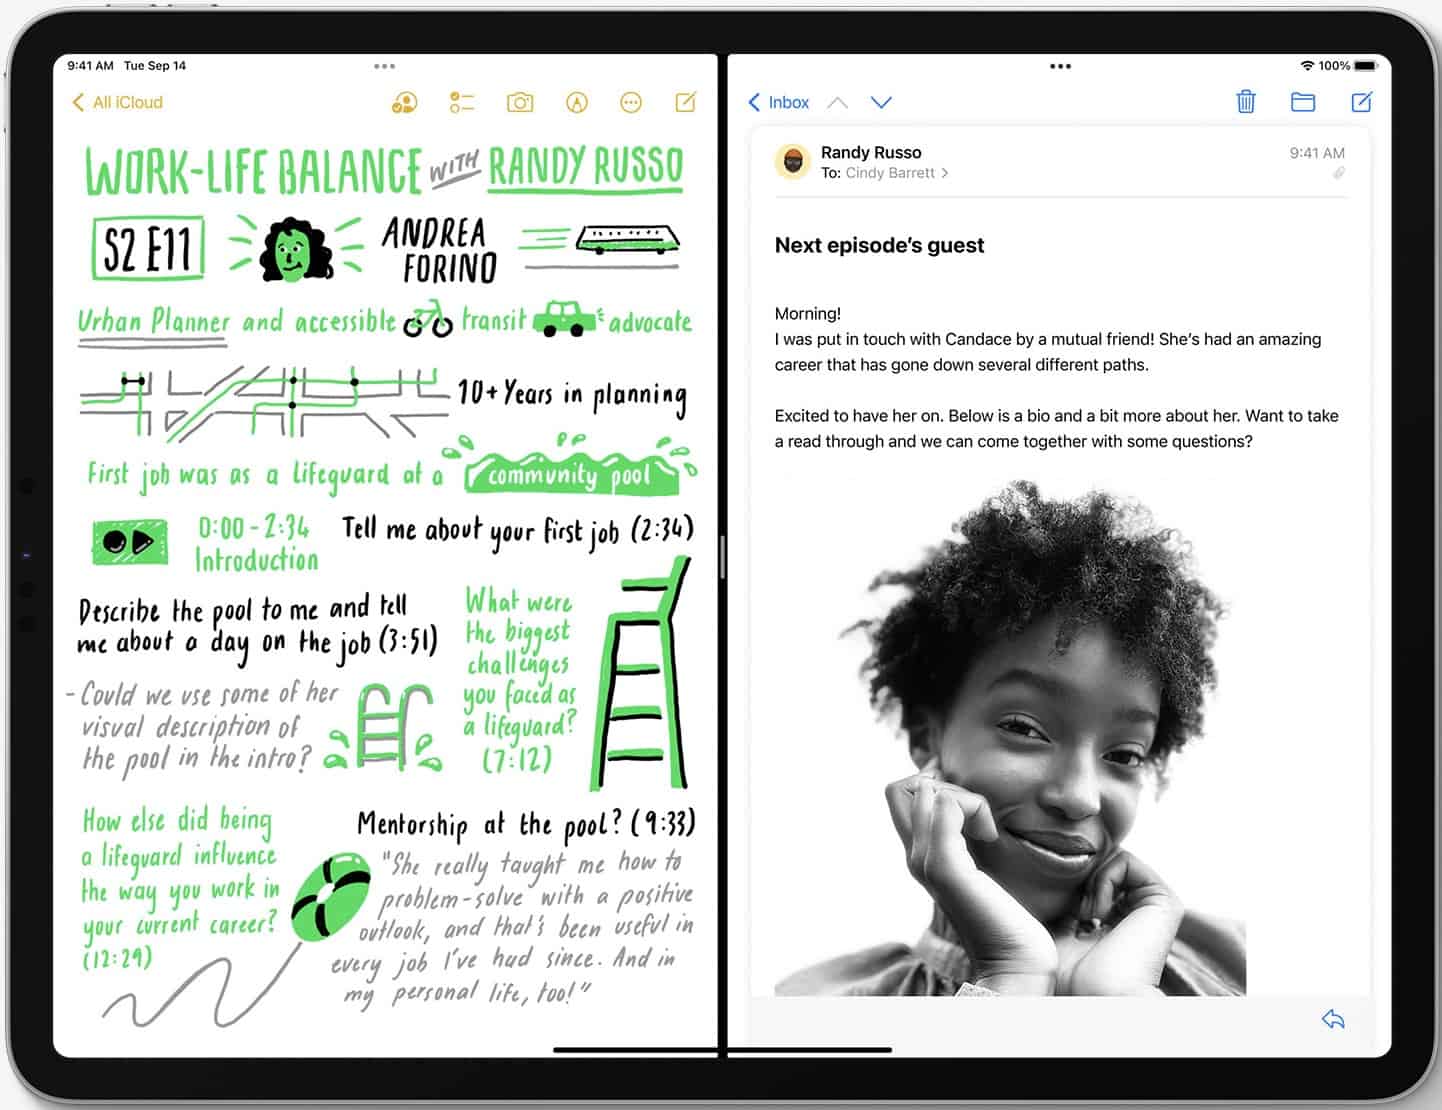 9:41 AM Tue Sep 14
100%
All iCloud
WORK-LIFE BALANCE WITH RANDY RUSSO
S2 E11
ANDREA
FORINO
Urban Planner and accessible transit advocate
10+Years in planning
First job was as a lifeguard at a community pool
0:00-2:34
Introduction
Tell me about your first job (2:34)
Describe the pool to me and tell
me about a day on the job (3:51)
- Could we use some of her
visual description of
the pool in the intro?
What were
the biggest
challenges
you faced as
a lifeguard?
(7:12)
How else did being
a lifeguard influence
the way you work in
your current career?
(12:29)
Mentorship at the pool? (9:33)
"She really taught me how to
problem-solve with a positive
outlook, and that's been useful in
every job I've had since. And in
my personal life, too!"
Inbox
Randy Russo
9:41 AM
To: Cindy Barrett
Next episode's guest
Morning!
I was put in touch with Candace by a mutual friend! She's had an amazing
career that has gone down several different paths.
Excited to have her on. Below is a bio and a bit more about her. Want to take
a read through and we can come together with some questions?